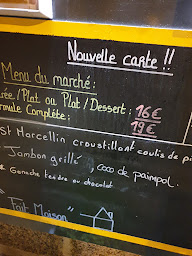 Nouvelle carte !!
Menu du marché :
rée / Plat ou Plat / Dessert : 16€
rmule Complète : 19€
St Marcellin croustillant coulis de pi
Jambon grillé, coco de paimpol.
Ganache tendre au chocolat
"Fait Maison"